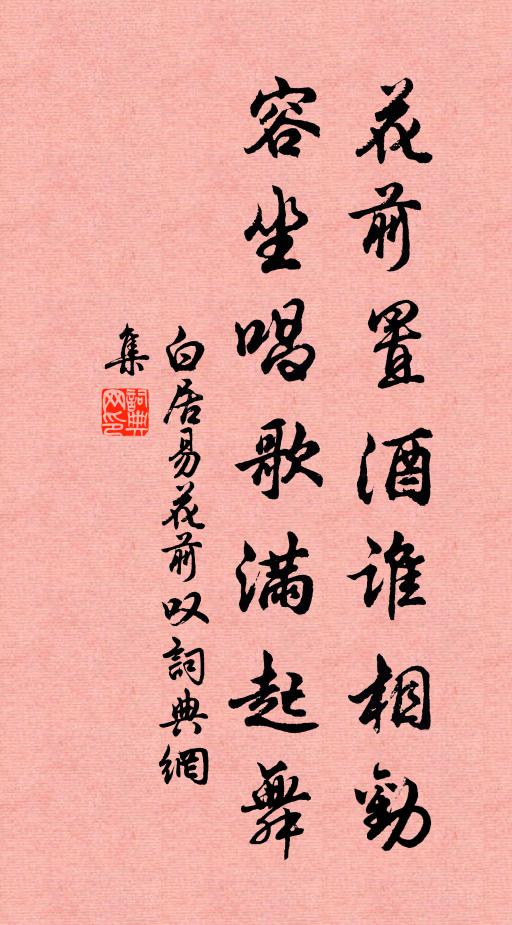 花前置酒谁相勸
容坐唱歌满起舞
白居易花前叹詞典網
集
詞典网印